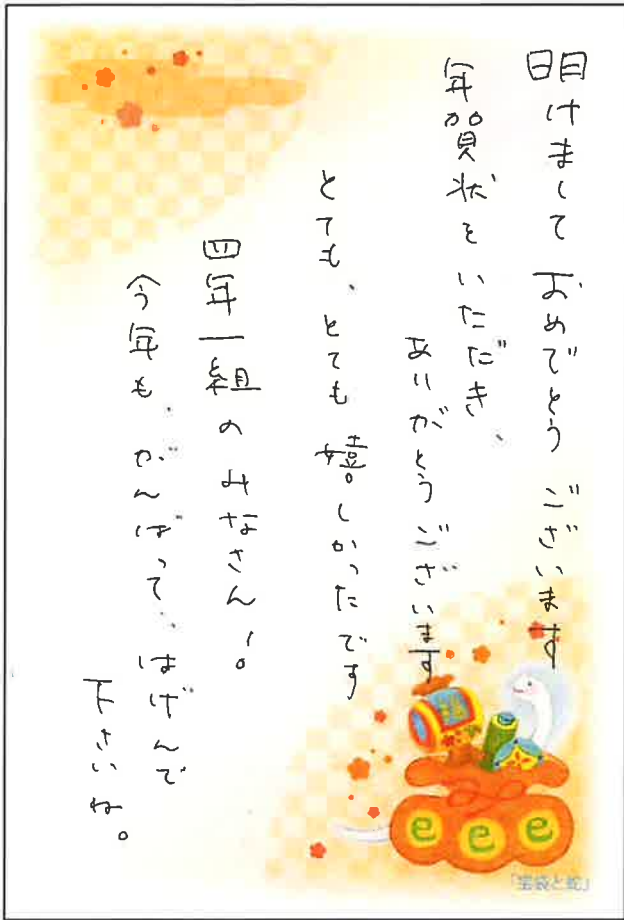 明けまして おめでとう ございます
年賀状を いただき、
ありがとうございます
とても、とても 嬉しかったです
四年一組の みなさん！。
今年も、がんばって、はげんで
下さいね。
「宝袋と蛇」